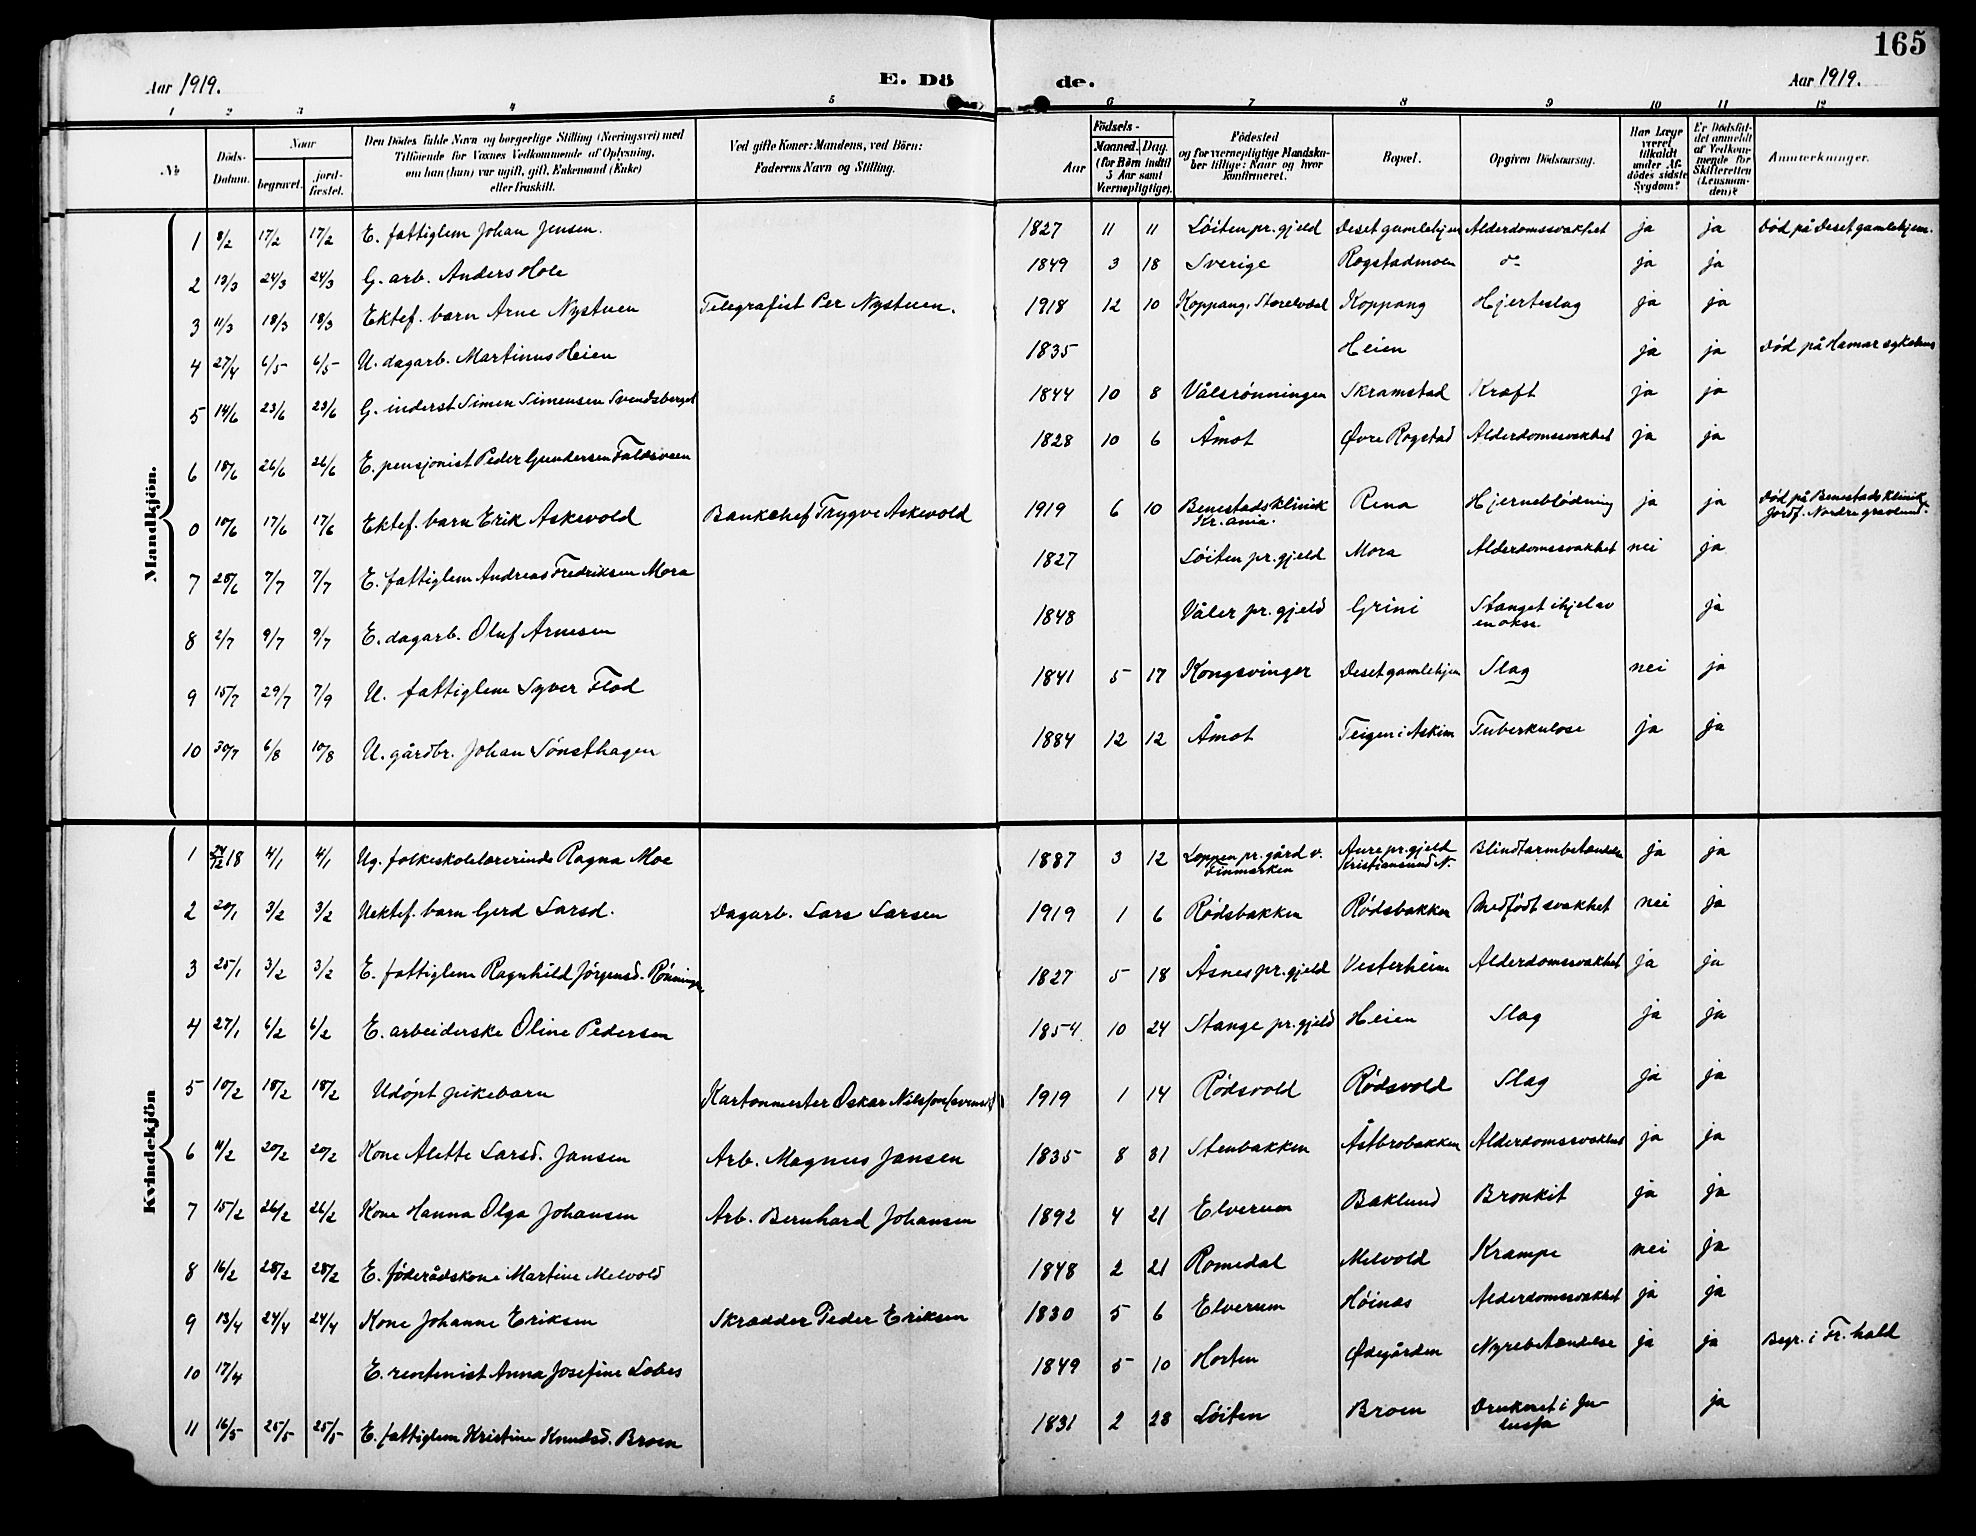 165
Aar 1919.
E. Dö
de.
Aar 1919.
1 2 3 4 5 6 7 8 9 10 11 12
No
Döds-Datum.
Naar
begravet.
jord-fæstet.
Den Dödes fulde Navn og borgerlige Stilling (Næringsvei) med
Tilföiende for Voxnes Vedkommende af Oplysning,
om han (hun) var ugift, gift, Enkemand (Enke)
eller fraskilt.
Ved gifte Koner: Mandens, ved Börn:
Faderens Navn og Stilling.
Födsels-
Aar
Maaned. Dag.
(for Börn indtil
5 Aar samt
Værnepligtige).
Födested
og for værnepligtige Mandska-
ber tillige: Naar og hvor
konfirmeret.
Bopæl.
Opgiven Dödsaarsag.
Har Læge
været
tilkaldt
under Af-
dödes sidste
Sygdom?
Er Dödsfal-
det anmeldt
af Vedkom-
mende for
Skifteretten
(Lensman-
den)?
Anmærkninger.
Mandkjön.
1 8/2 17/2 17/2 E. fattiglem Johan Jensen. 1827 11 11 Løiten pr.gjeld Deset gamlehjem Alderdomssvakhet ja ja Død på Deset gamlehjem.
2 13/3 24/3 24/3 G. arb. Anders Hole 1849 3 18 Sverige Rogstadmoen do ja ja
3 11/3 18/3 18/3 Ektef. barn Arne Nystuen Telegrafist Per Nystuen. 1918 12 10 Koppang, Storelvdal Koppang Hjerteslag ja ja
4 27/4 6/5 6/5 U. dagarb. Martinus Heien 1835 Heien ja ja Død på Hamar sykehus
5 14/6 23/6 23/6 G. inderst Simen Simensen Svendsberget 1844 10 8 Vålsrønningen Skramstad Kræft ja ja
6 18/6 26/6 26/6 E. pensjonist Peder Gundersen 1828 10 6 Åmot Øvre Rogstad Alderdomssvakhet ja ja
0 10/6 17/6 17/6 Ektef. barn Erik Askevold Bankchef Trygve Askevold 1919 6 10 Benestads klinik Kr.ania. Rena Hjerneblödning ja ja Død på Benestads klinik Jordf. Nordre gravlund.
7 28/6 7/7 7/7 E. fattiglem Andreas Fredriksen Mora 1827 Løiten pr.gjeld Mora Alderdomssvakhet nei ja
8 2/7 9/7 9/7 E. dagarb. Oluf Arnesen 1848 Våler pr.gjeld Grini Stanget ihjel av en okse ja
9 15/7 29/7 7/9 U. fattiglem Syver Flod 1841 5 17 Kongsvinger Deset gamlehjem Slag nei ja
10 30/7 6/8 10/8 U. gårdbr. Johan Sønsthagen 1884 12 12 Åmot Teigen i Askim Tuberkulose ja ja
Kvindekjön
1 24/12 18 4/1 4/1 Ug. folkeskolelærerinde Ragna Moe 1887 3 12 Loppen pr.gård v. Finmarken Aure pr.gjeld Kristiansund N. Blindtarmbetændelse ja ja
2 20/1 3/2 3/2 Uektef. barn Gerd Larsd. Dagarb. Lars Larsen 1919 1 6 Rødsbakken Rødsbakken Medfödt svakhet nei ja
3 25/1 3/2 3/2 E. fattiglem Ragnhild Jørgensd. Rønningen 1827 5 18 Åsnes pr.gjeld Vesterheim Alderdomssvakhet ja ja
4 27/1 6/2 6/2 E. arbeiderske Oline Pedersen 1854 10 24 Stange pr.gjeld Heien Slag ja ja
5 10/2 18/2 18/2 Udöpt pikebarn Kartonmester Oskar Nilsson (svensk) 1919 1 14 Rødsvold Rødsvold Slag ja ja
6 11/2 20/2 20/2 Kone Alette Larsd. Jansen Arb. Magnus Jansen 1835 8 31 Stenbakken Åstbrobakken Alderdomssvakhet ja ja
7 15/2 26/2 26/2 Kone Hanna Olga Johansen Arb. Bernhard Johansen 1892 4 21 Elverum Baklund Bronkit ja ja
8 16/2 28/2 28/2 E. föderådskone Martine Melvold 1848 2 21 Romedal Melvold Krampe nei ja
9 13/4 24/4 24/4 Kone Johanne Eriksen Skrædder Peder Eriksen 1830 5 6 Elverum Høinæs Alderdomssvakhet ja ja
10 17/4 E. rentenist Anna Josefine Lobes 1849 5 10 Horten Ødegården Nyrebetændelse ja ja Begr. i Fr.hald
11 16/5 25/5 25/5 E. fattiglem Kristine Knudsd. Broen 1831 2 28 Løiten Broen Druknet i Julussa ja